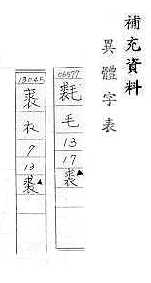 補充資料
異體字表
06577
毛
13
17
裘▲
13045
裘
衣
7
13
裘▲